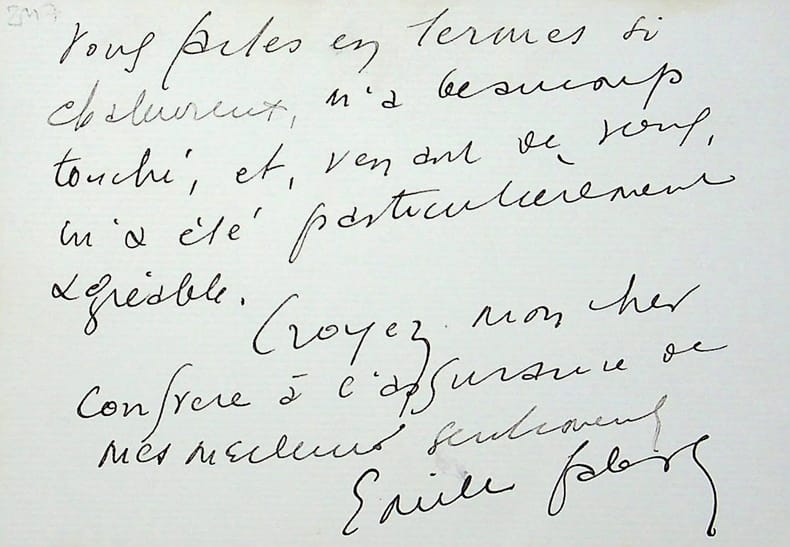 vous faites en termes si
chaleureux, m'a beaucoup
touché, et, venant de vous,
m'a été particulièrement
agréable.
Croyez mon cher
confrere à l'assurance de
mes meilleurs sentiments
Emile